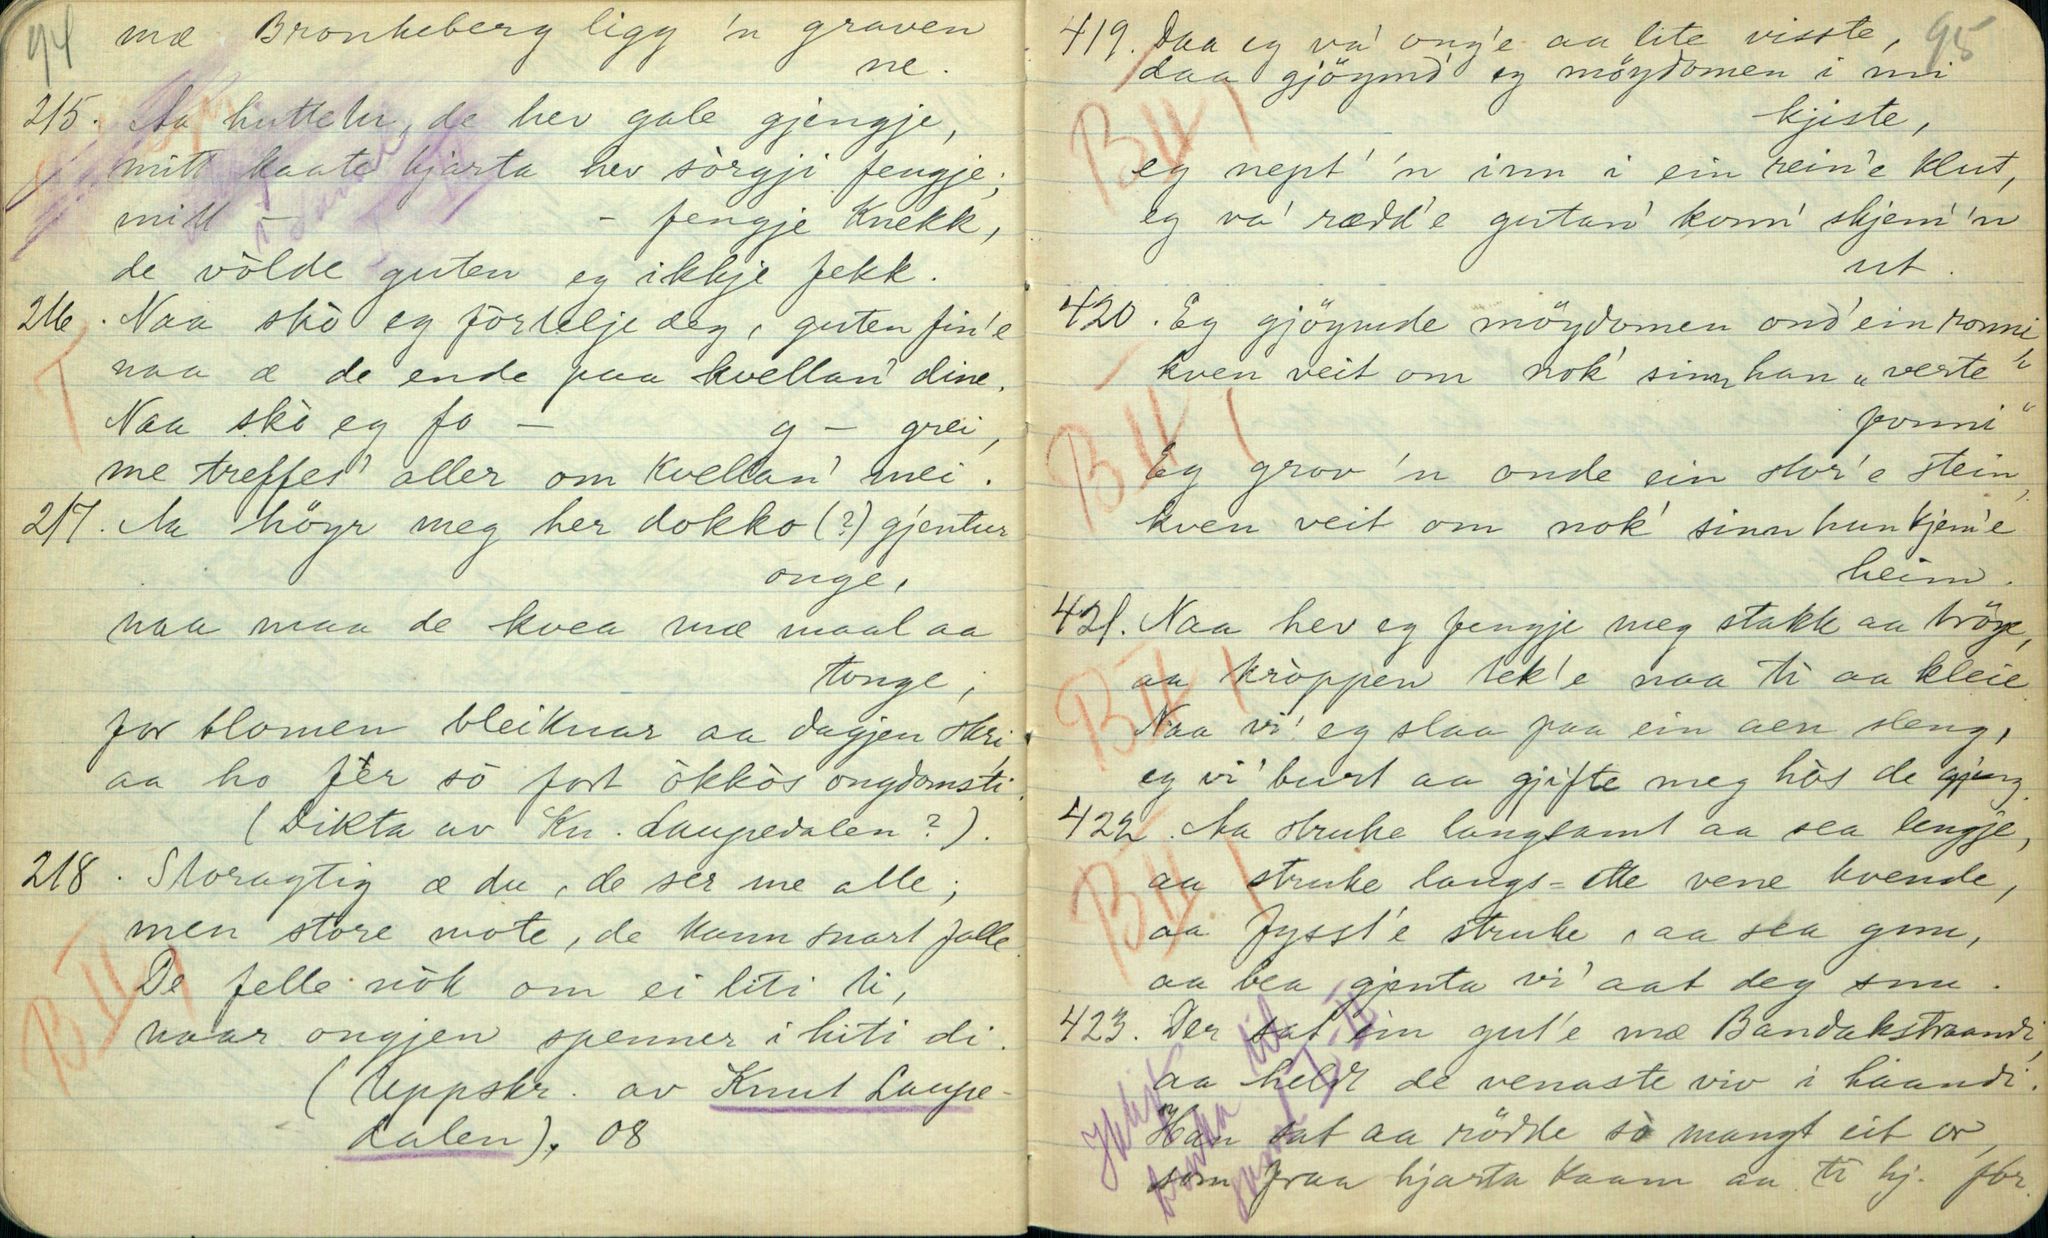 94
mæ Bronkeberg ligg 'n graven
ne.
215. Aa huttetu, de hev gale gjengje,
mitt kaate hjarta hev sòrgji fengje;
mitt – – fengje knekk,
de vòlde guten eg ikkje fekk.
216. Naa skò eg fòrtelje deg, guten fin'e
naa æ de ende paa kvellan' dine.
Naa skò eg fo – g – grei,
me treffes' aller om kvellan' mei.
T
217. Aa höyr meg her dokko (?) gjentur
onge,
naa maa de kvea mæ maal aa
tonge;
for blomen bleiknar aa dagjen skri,
aa ho fèr so fort òkkòs ongdomsti.
(Dikta av Kn. Laupedalen?).
218. Storagtig æ du, de ser me alle;
men store mote, de kann snart falle.
De felle nòk om ei liti ti,
naar ongjen spenner i hiti di.
(Uppskr. av Knut Laupe-
dalen), 08
B IV 1
95
419. Daa eg va' ong'e aa lite visste,
daa gjöymd' eg möydomen i mi
kjiste,
eg nept' 'n inn i ein rein'e klut,
eg va' rædd'e gutan' konn' skjem' 'n
ut.
B IV 1
420. Eg gjöymde möydomen ond' ein ronni,
kven veit om nok' sinn han "verte
fonni"
Eg grov 'n onde ein stor'e stein,
kven veit om nok' sinn hun kjem'e
heim.
B IV 1
421. Naa hev eg fengje meg stakk aa tröye,
aa kròppen tek'e naa ti aa kleie
Naa vi' eg slaa paa ein aen sleng,
eg vi' burt aa gjifte meg hòs de gjeng.
B IV 1
422. Aa struke langsamt aa sea lengje,
aa struke langs-ette vene kvende,
aa fysst'e struke, aa sea gnu,
aa bea gjenta vi' aat deg snu.
B IV 1
423. Der sat ein gut'e mæ Bandakstraandi,
aa heldt de venaste viv i haandi.
Han sat aa rödde so mangt eit or,
som fraa hjarta kaam aa ti hj. for.